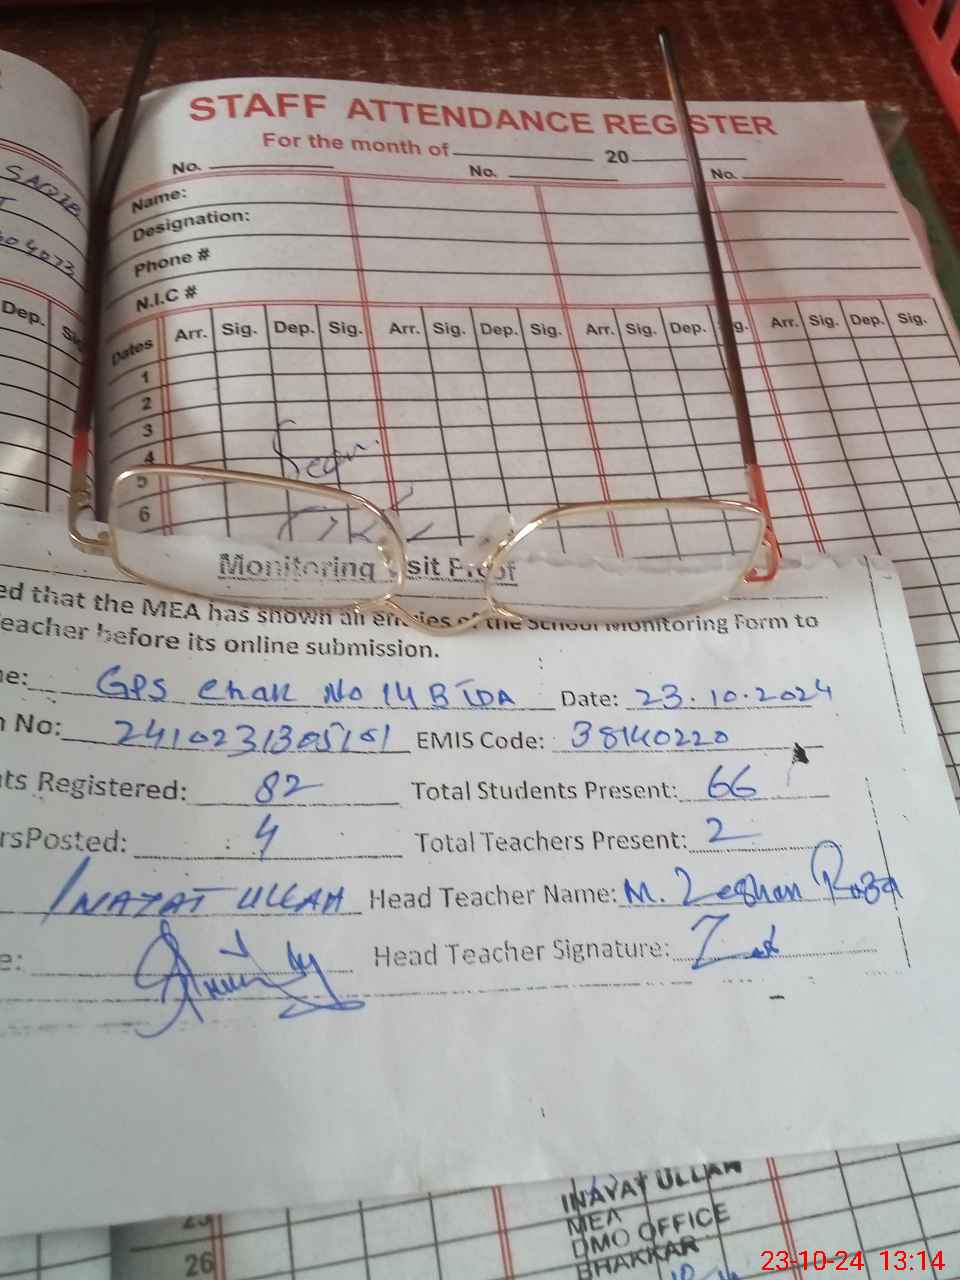 STAFF ATTENDANCE REGISTER
For the month of 20
No. No. No.
SAQIB
Name:
Designation:
Phone #
N.I.C #
Dep.
Dates Arr. Sig. Dep. Sig. Arr. Sig. Dep. Sig. Arr. Sig. Dep. g. Arr. Sig. Dep. Sig.
1
2
3
4
5
6
Seen
Monitoring isit Proof
ed that the MEA has shown all entries of the School Monitoring Form to
eacher before its online submission.
e: GPS Chak No 14 B TDA Date: 23.10.2024
n No: 2410231305151 EMIS Code: 38140220
nts Registered: 82 Total Students Present: 66
rsPosted: 4 Total Teachers Present: 2
INAYAT ULLAH Head Teacher Name: M. Zeshan Raza
e: Head Teacher Signature:
INAYAT ULLAH
MEA
DMO OFFICE
BHAKKAR
25
26
23-10-24 13:14